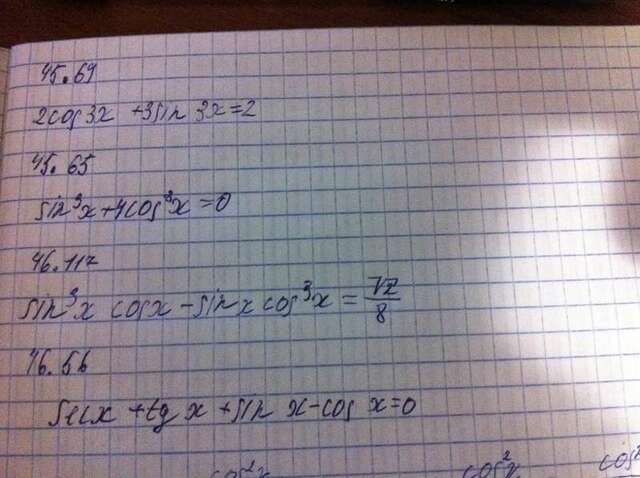 45.69
2cos3x +3sin 3x=2
45.65
sin³x+4cos³x=0
46.112
sin³x cosx-sin x cos³x = √2/8
46.56
secx +tg x +sin x-cos x=0
cos²x cos²x cos²